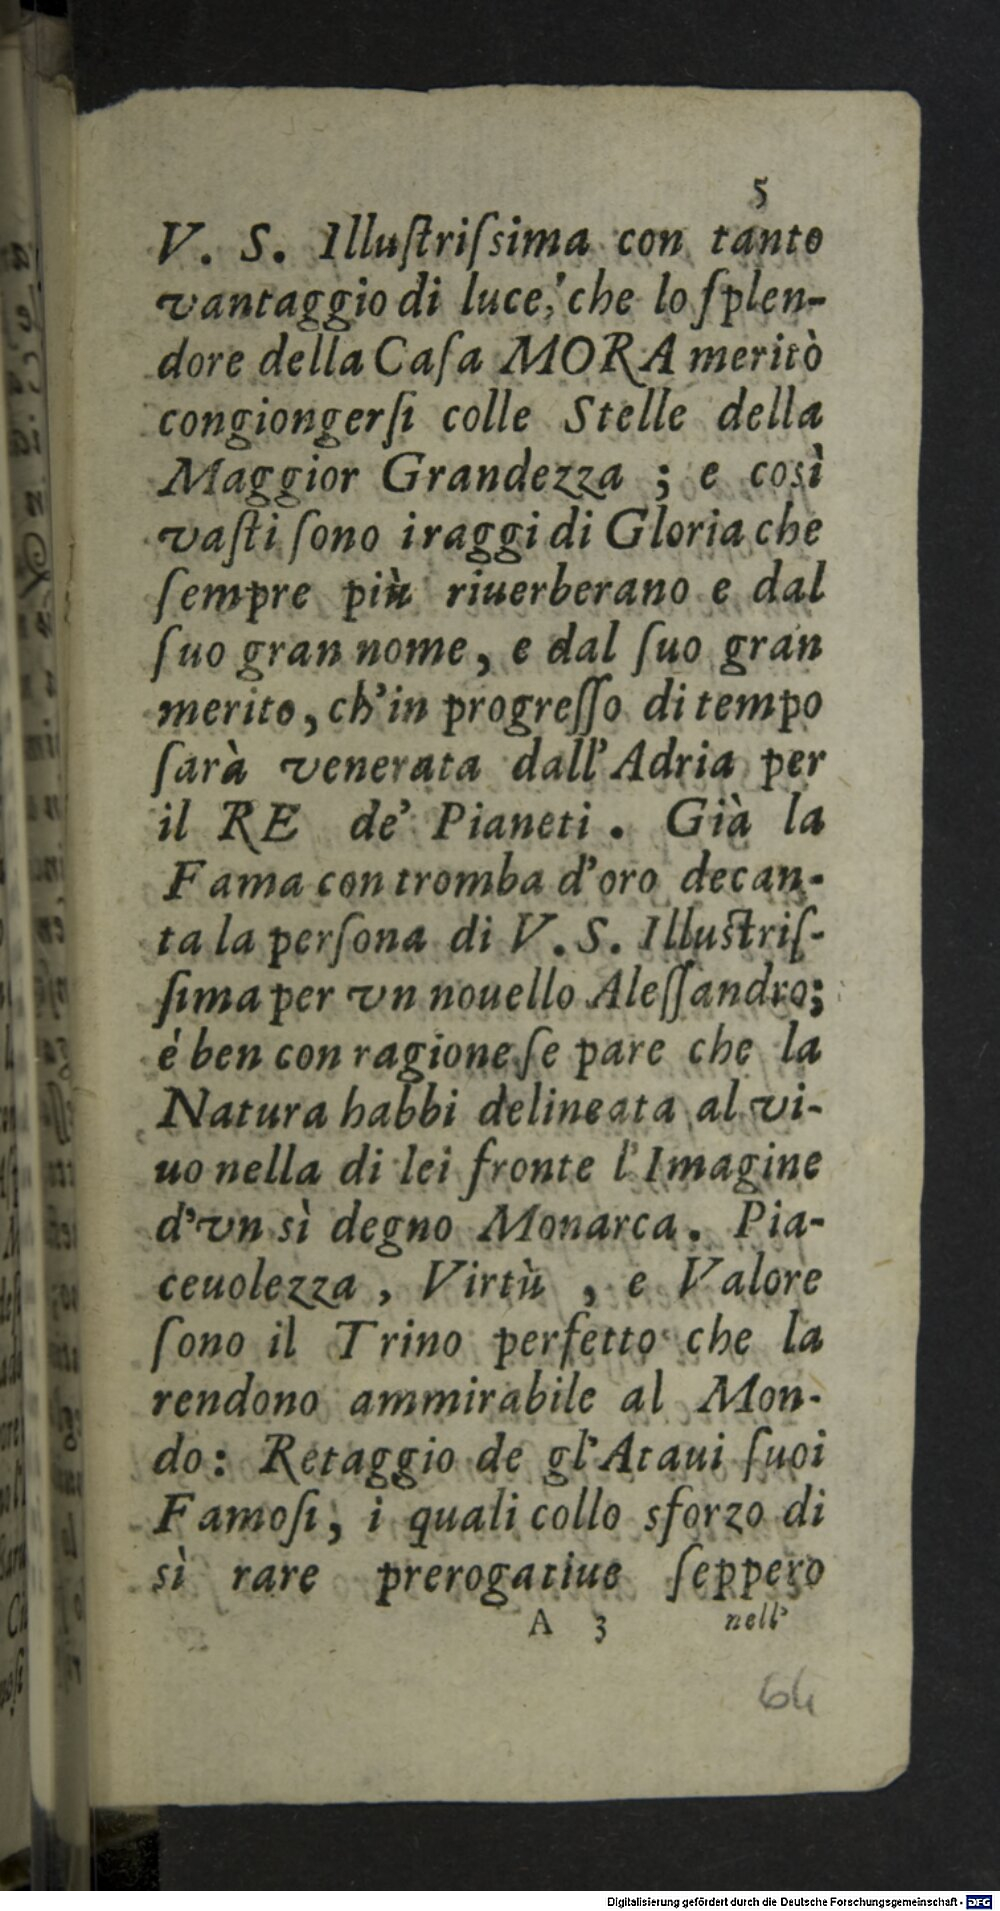 5
V. S. Illuſtriſsima con tanto
vantaggio di luce, che lo ſplen-
dore della Caſa MORA meritò
congiongerſi colle Stelle della
Maggior Grandezza ; e così
vaſti ſono i raggi di Gloria che
ſempre più riuerberano e dal
ſuo gran nome, e dal ſuo gran
merito, ch'in progreſſo di tempo
ſarà venerata dall'Adria per
il RE de' Pianeti. Già la
Fama con tromba d'oro decan-
ta la perſona di V. S. Illuſtriſ-
ſima per vn nouello Aleſſandro;
è ben con ragione ſe pare che la
Natura habbi delineata al vi-
uo nella di lei fronte l'Imagine
d'vn sì degno Monarca. Pia-
ceuolezza, Virtù, e Valore
ſono il Trino perfetto che la
rendono ammirabile al Mon-
do: Retaggio de gl'Ataui ſuoi
Famoſi, i quali collo sforzo di
sì rare prerogatiue ſeppero
A 3 nell'
64
Digitalisierung gefördert durch die Deutsche Forschungsgemeinschaft - DFG